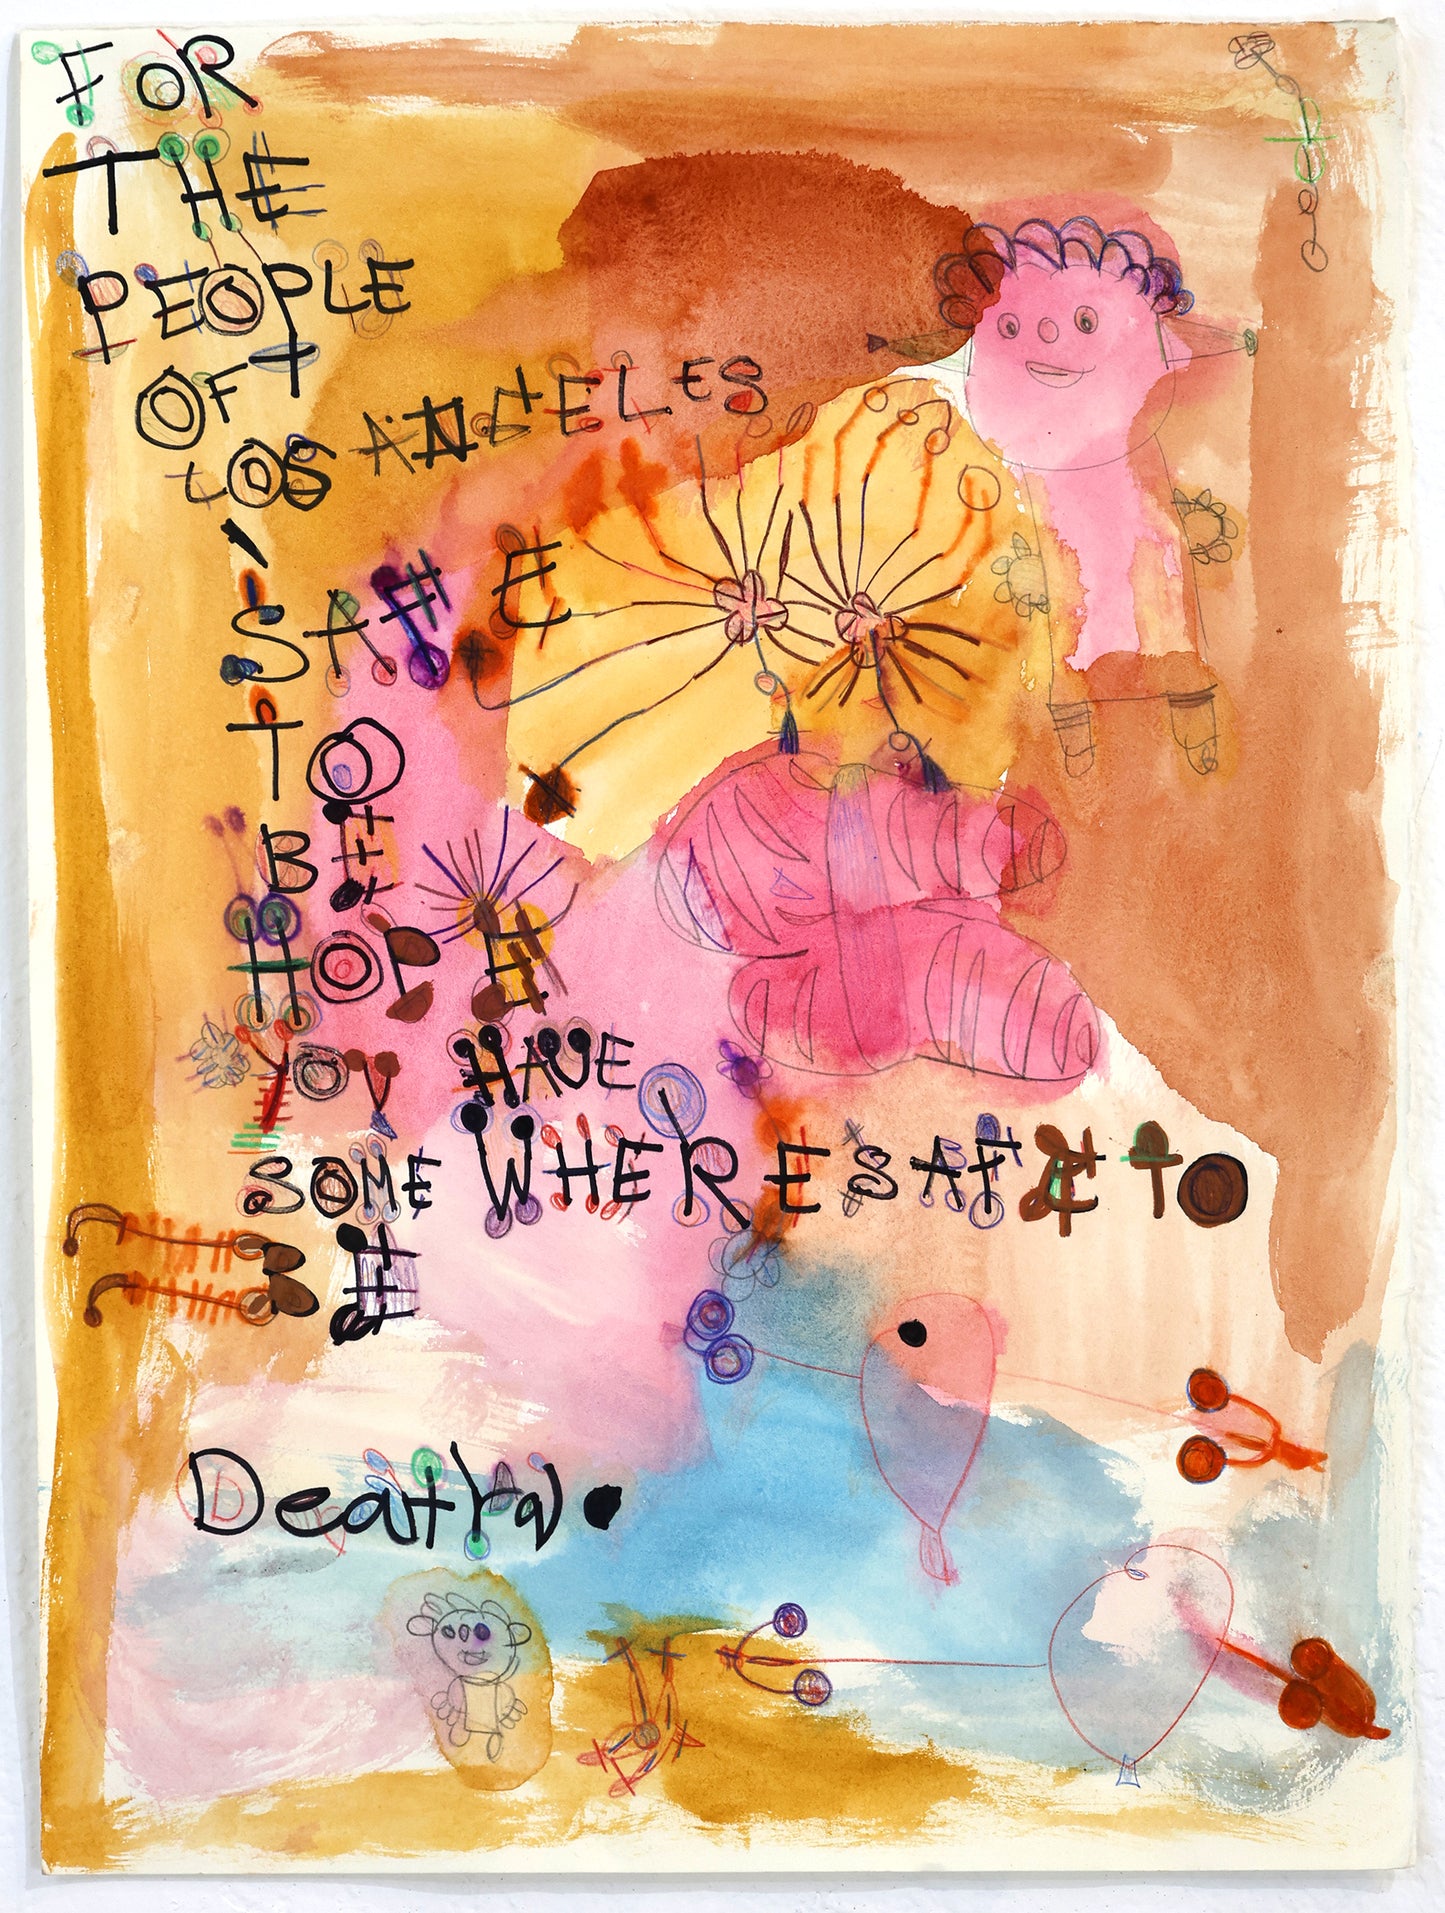 FOR
THE
PEOPLE
OF
LOS ANGELES
SAFE
TO
BE
HOPE
YOU HAVE
SOME WHERE SAFE TO
BE